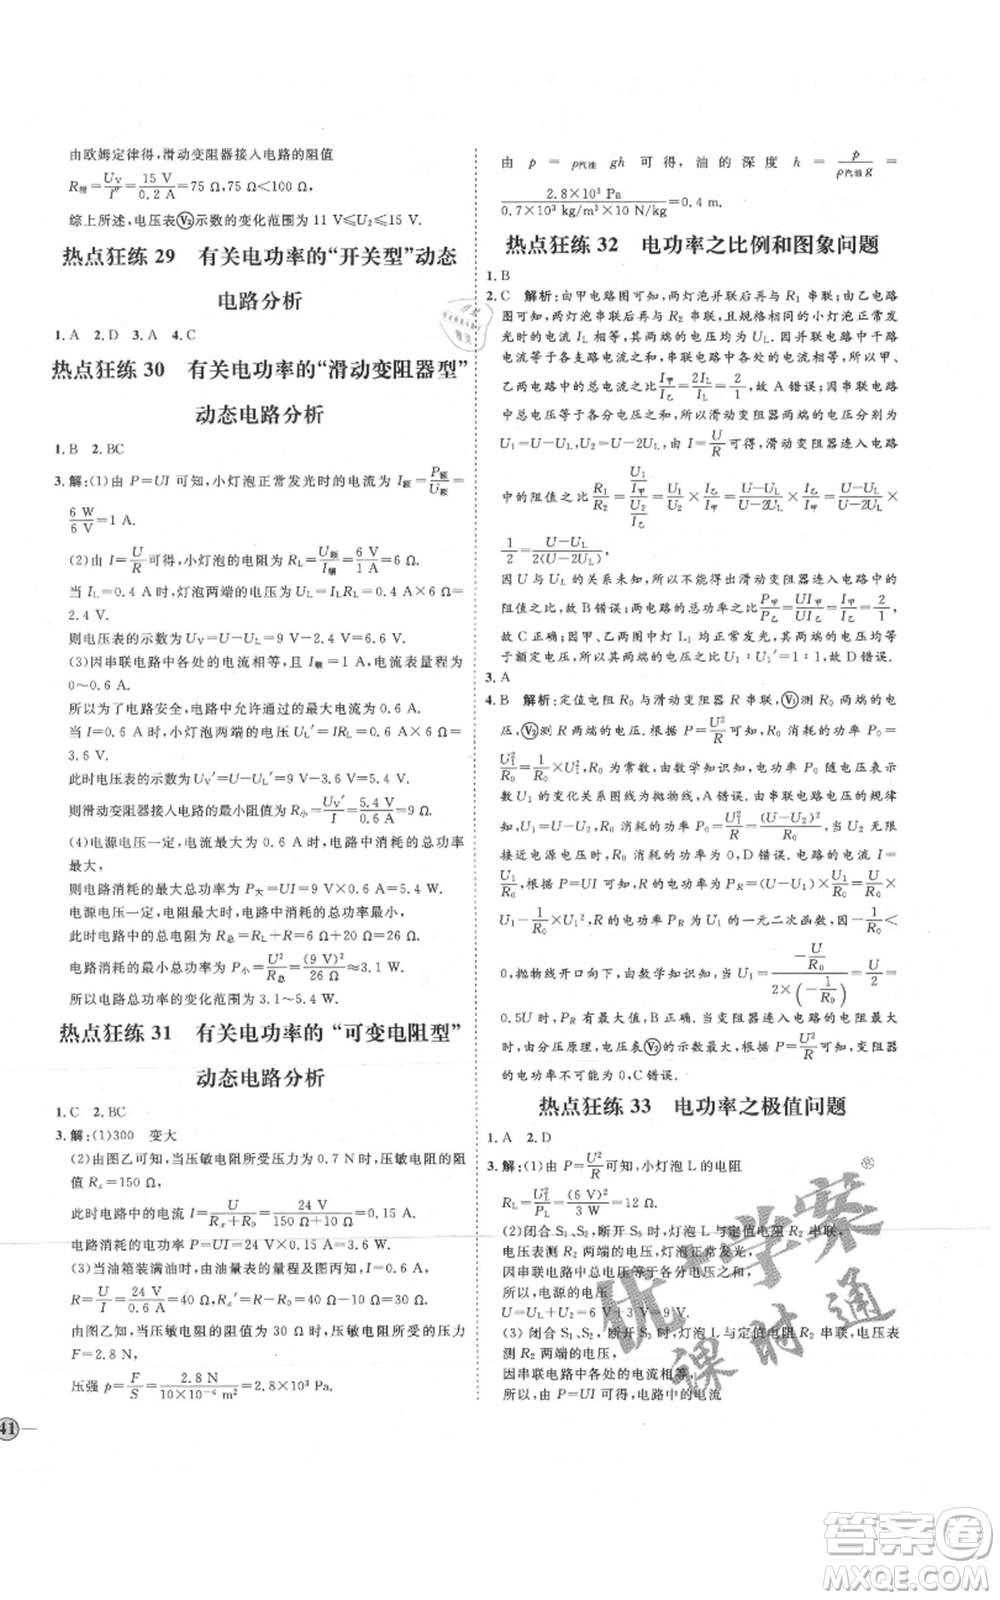 由欧姆定律得,滑动变阻器接入电路的阻值
R滑=U_V/I″=15 V/0.2 A=75 Ω,75 Ω<100 Ω.
综上所述,电压表(V₂)示数的变化范围为11 V≤U₂≤15 V.
热点狂练 29 有关电功率的“开关型”动态
电路分析
1. A 2. D 3. A 4. C
热点狂练 30 有关电功率的“滑动变阻器型”
动态电路分析
1. B 2. BC
3. 解:(1)由 P=UI 可知,小灯泡正常发光时的电流为 I额=P额/U额=
6 W/6 V=1 A.
(2)由 I=U/R 可得,小灯泡的电阻为 R_L=U额/I额=6 V/1 A=6 Ω.
当 I=0.4 A 时,灯泡两端的电压为 U_L=IR_L=0.4 A×6 Ω=
2.4 V.
则电压表的示数为 U_V=U-U_L=9 V-2.4 V=6.6 V.
(3)因串联电路中各处的电流相等,且 I额=1 A,电流表量程为
0~0.6 A.
所以为了电路安全,电路中允许通过的最大电流为 0.6 A.
当 I=0.6 A 时,小灯泡两端的电压 U_L′=IR_L=0.6 A×6 Ω=
3.6 V.
此时电压表的示数为 U_V′=U-U_L′=9 V-3.6 V=5.4 V.
则滑动变阻器接入电路的最小阻值为 R小=U_V′/I=5.4 V/0.6 A=9 Ω.
(4)电源电压一定,电流为最大值 0.6 A 时,电路消耗的功率
最大,
则电路消耗的最大总功率为 P大=UI=9 V×0.6 A=5.4 W.
电源电压一定,电路中总电阻最大时,电路消耗的功率最小.
此时电路中的总电阻为 R总=R_L+R=6 Ω+20 Ω=26 Ω.
电路消耗的最小总功率为 P小=U²/R总=(9 V)²/26 Ω≈3.1 W.
所以电路总功率的变化范围为 3.1~5.4 W.
热点狂练 31 有关电功率的“可变电阻型”
动态电路分析
1. C 2. BC
3. 解:(1)300 变大
(2)由图乙可知,当压敏电阻所受压力为 0.7 N 时,压敏电阻的阻
值 Rₓ=150 Ω,
此时电路中的电流 I=U/(Rₓ+R₀)=24 V/(150 Ω+10 Ω)=0.15 A.
电路消耗的电功率 P=UI=24 V×0.15 A=3.6 W.
(3)当油箱装满油时,由油量表的量值及图丙知, I=0.6 A.
R=U/I=24 V/0.6 A=40 Ω, Rₓ′=R-R₀=40 Ω-10 Ω=30 Ω.
由图乙知,当压敏电阻的阻值为 30 Ω 时,压敏电阻所受的压力
F=2.8 N,
压强 p=F/S=2.8 N/(10×10⁻⁴ m²)=2.8×10³ Pa.
41
由 p=ρ汽油gh 可得,油的深度 h=p/(ρ汽油g)=
2.8×10³ Pa/(0.7×10³ kg/m³×10 N/kg)=0.4 m.
热点狂练 32 电功率之比例和图象问题
1. B
2. C 解析:由甲电路图可知,两灯泡并联后再与 R₁ 串联,由乙电路
图可知,两灯泡串联后再与 R₂ 串联,且规格相同的小灯泡正常
发光时的电流 I_L 相等,两端的电压均为 U_L.因并联电路中干路
电流等于各支路电流之和,串联电路中各处的电流相等,所以甲、
乙两电路中的总电流之比为 I甲/I乙=2I_L/I_L=2/1,故 A 错误;因串联电路
中总电压等于各分电压之和,所以滑动变阻器两端的电压分别为
U₁=U-U_L, U₂=U-2U_L,由 I=U/R 可得,滑动变阻器连入电路
中的阻值之比 R₁/R₂=(U₁/I甲)/(U₂/I乙)=U₁/U₂×I乙/I甲=(U-U_L)/(U-2U_L)×I乙/I甲=(U-U_L)/(U-2U_L)×
1/2=(U-U_L)/2(U-2U_L).
因 U 与 U_L 的关系未知,所以无法确定滑动变阻器连入电路中的
阻值之比,故 B 错误;两电路的总功率之比 P甲/P乙=UI甲/UI乙=I甲/I乙=2/1,
故 C 正确;因甲、乙两图中灯 L₁ 均正常发光,其两端的电压均为
额定电压,所以灯 L₁ 两端的电压之比 U₁∶U₁′=1∶1,故 D 错误.
3. A
4. B 解析:定值电阻 R₀ 与滑动变阻器 R 串联,(V₁)测 R₀ 两端的电
压,(V₂)测 R 两端的电压.根据 P=U²/R, R₀ 消耗的功率 P₀=
U₁²/R₀=1/R₀×U₁², R₀ 为常数,由数学知识可知, P₀ 与电压表(V₁)示
数 U₁ 的变化关系图线为抛物线,A 错误.由串联电路电压的规律
知, U₁=U-U₂, R₀ 消耗的功率 P₀=U₁²/R₀=(U-U₂)²/R₀,当 U₂ 无限
接近电源电压时, P₀ 为 0,B 正确.电路的电流为 I=
U₁/R₀,根据 P=UI 可知, R 消耗的功率 P_R=(U-U₁)×U₁/R₀=U/R₀×
U₁-1/R₀×U₁²,即电功率 P_R 为 U₁ 的一元二次函数,因-1/R₀<
0,抛物线开口向下,由数学知识知,当 U₁=-(U/R₀)/(2×(-1/R₀))=U/2=
0.5U 时, P_R 有最大值,D 错误.当变阻器连入电路中的电阻为 0
时,由分压原理,电压表(V₂)的示数为 0,根据 P=U²/R 可知,此时 R 消
耗的电功率 P_R 为 0,C 错误.
热点狂练 33 电功率之极值问题
1. A 2. D
3. 解:(1)由 P=U²/R 可知,小灯泡 L 的电阻
R_L=U_L²/P_L=(6 V)²/3 W=12 Ω.
(2)闭合 S₁、S₂,断开 S₃ 时,灯泡 L 与定值电阻 R₂ 串联,
电压表测 R₂ 两端的电压,灯泡正常发光.
因串联电路中总电压等于各分电压之和,
所以,电源的电压
U=U_L+U₂=6 V+3 V=9 V.
(3)闭合 S₁、S₂,断开 S₃ 时,灯泡 L 与定值电阻 R₂ 串联,电压表测
R₂ 两端的电压.
因串联电路中各处的电流相等,
所以,由 P=UI 可得,电路中的电流
优+学案
课时通
答案圈
MXQE.COM